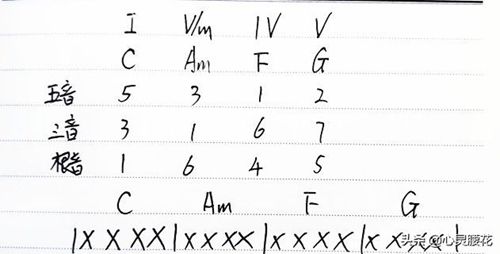 I VIm IV V
C Am F G
五音 5 3 1 2
三音 3 1 6 7
根音 1 6 4 5
C Am F G
|X X X X|X X X X|X X X X|X X X X|
头条@心灵腰花